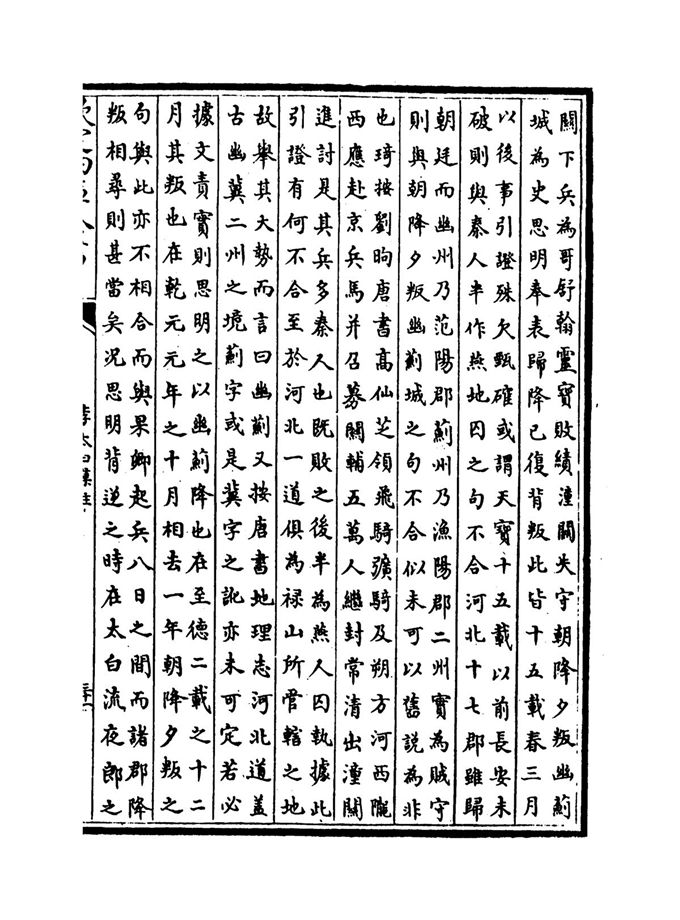 關下兵為哥舒翰靈寶敗績潼關失守朝降夕叛幽薊
城為史思明奉表歸降已復背叛此皆十五載春三月
以後事引證殊欠甄確或謂天寶十五載以前長安未
破則與秦人半作燕地囚之句不合河北十七郡雖歸
朝廷而幽州乃范陽郡薊州乃漁陽郡二州實為賊守
則與朝降夕叛幽薊城之句不合似未可以舊說為非
也琦按劉昫唐書高仙芝領飛騎彍騎及朔方河西隴
西應赴京兵馬并召募關輔五萬人繼封常清出潼關
進討是其兵多秦人也既敗之後半為燕人囚執據此
引證有何不合至於河北一道俱為祿山所管轄之地
故舉其大勢而言曰幽薊又按唐書地理志河北道盖
古幽冀二州之境薊字或是冀字之訛亦未可定若必
據文責實則思明之以幽薊降也在至德二載之十二
月其叛也在乾元元年之十月相去一年朝降夕叛之
句與此亦不相合而與果卿起兵八日之間而諸郡降
叛相尋則甚當矣況思明背逆之時在太白流夜郎之